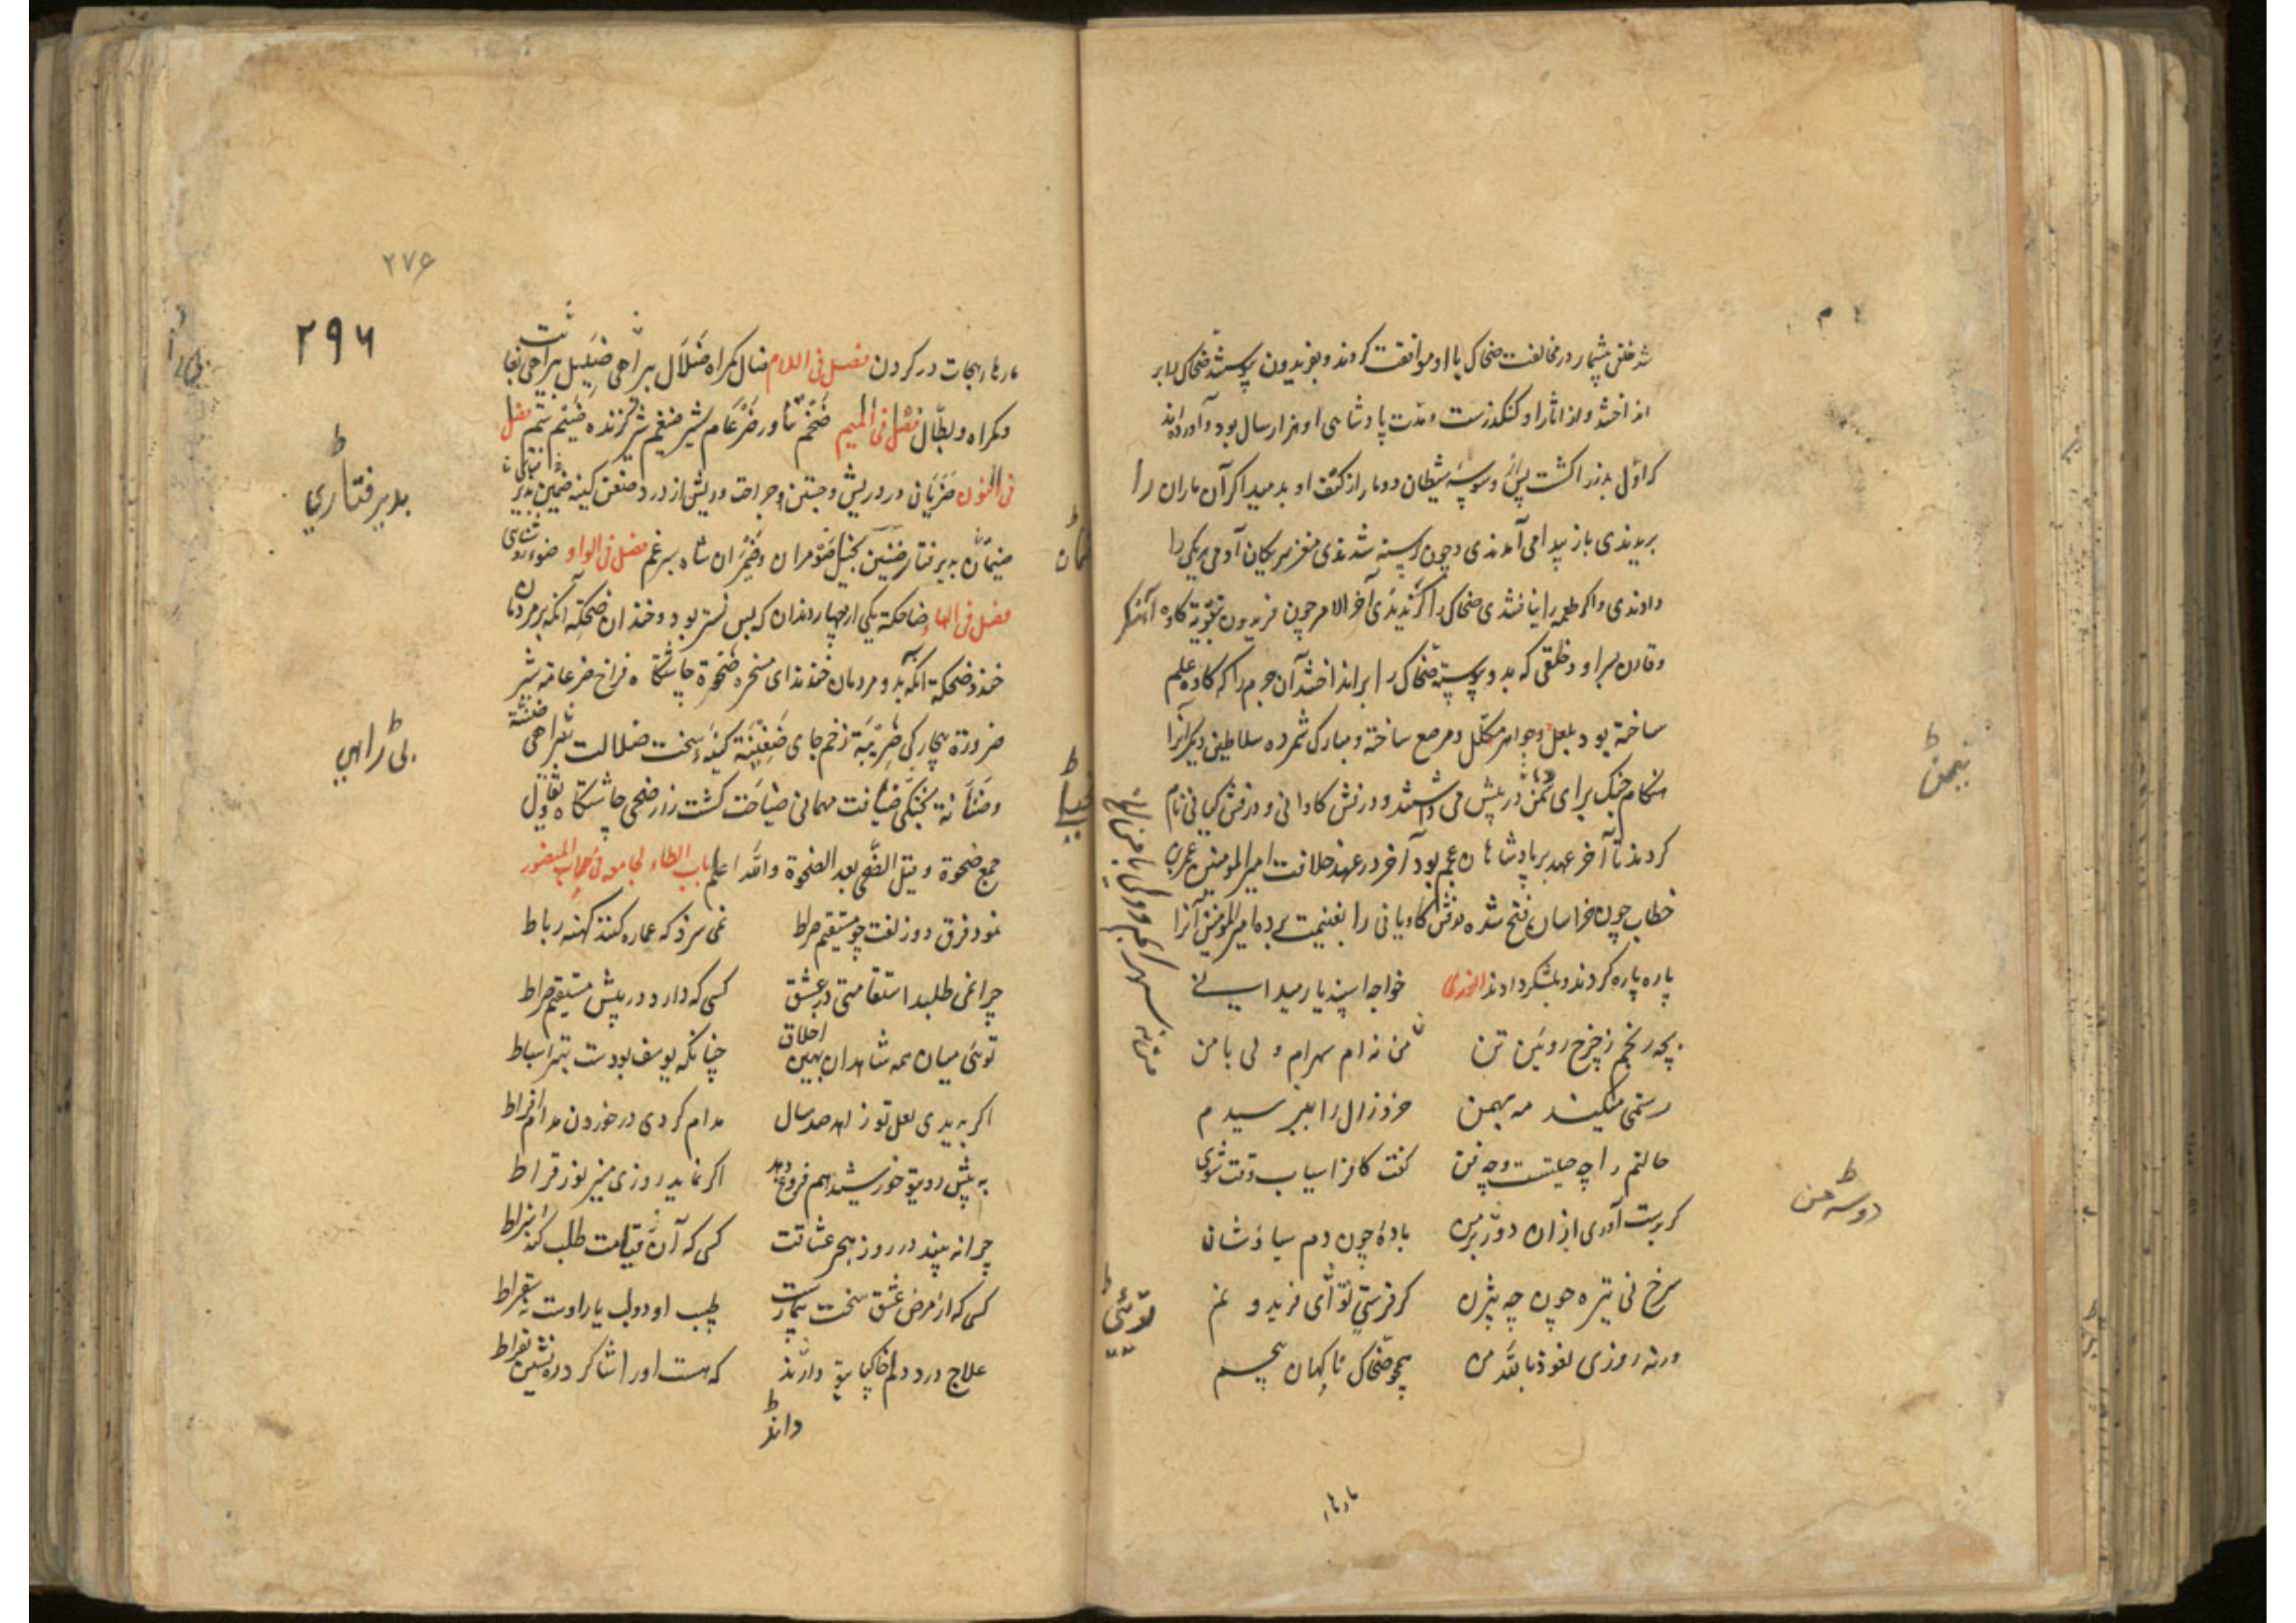 شد خلقی بیشمار در مخالفت ضحاک با او موافقت کردند و بفریدون پیوستند ضحاک را بر
انداختند و از آثار او کنکدزست و مدت پادشاهی او هزار سال بود و آورده‌اند
که اول پدر را کشت پس از وسوسهٔ شیطان دو مار از کتف او بدمید اکر آن ماران را
بریدندی باز پیدا می آمدندی و چون کرسنه شدندی مغز سر یکان آدمی هریکی را
دادندی و اکر طعمه را نیافتندی ضحاک را کزیدندی آخر الامر چون فریدون بتقویة کاوه آهنکر
و قارن پسر او و خلقی که بدو پیوسته ضحاک را برانداختند آن جرم را که کاوه علم
ساخته بود بلعل و جواهر مکلل و مرصع ساخته و مبارک شمرده سلاطین دیکر آنرا
هنکام جنک برای تیمن در پیش می داشتند و درفش کاوانی و درفش کیانی نام
کردند تا آخر عهد بر پادشاهان عجم بود آخر در عهد خلافت امیر المومنین عمر بن
خطاب چون خراسان فتح شده درفش کاویانی را بغنیمت برده امیر المومنین آنرا
پاره پاره کردند و بلشکر دادند انوری خواجه اسپندیار میدانی
بچه رنجم ز چرخ روئین تن من نه ام سهراب و لی با من
رستمی میکند مه بهمن خرد زال را بپرسیدم
حالتم را چه حیلتست و چه فن کفت کافراسیاب وقت شوی
کر بدست آوری ازان دو سه من بادهٔ چون دم سیاوشان
سرخ نی تیره چون چه بیژن کر فرستی توئی فریدونم
ورنه روزی نعوذ بالله من همچو ضحاک ناکهان پیچم
تیمن
دو سه من
توئی
مارها
۲۷۶
۲۹۶
مارها بهجات در کردن فصل فی اللام ضال کمراه ضلال بیراهی ضلیل بیراهی
و کمراه و بطال فصل فی المیم ضخم تناور ضرغام شیر ضیغم شیر کزنده ضیم ستم فصل
فی النون ضربان درد ریش و جستن جراحت و ریش از درد ضغن کینه ضمین
ضیمان پذیرفتار ضنین بخیل ضومران و ضیمران شاه سپرغم فصل فی الواو ضوء روشنائی
فصل فی الهاء ضاحکة یکی از چهار دندان که پس نیشتر بود و خندان ضحکه آنکه بر مردمان
خندد ضحکة آنکه بدو مردمان خندند ای مسخره ضحوة چاشتکاه فراخ ضرغامه شیر
ضرورة بیچارکی ضریبة زخم جای ضغینة کینهٔ سخت ضلالت بیراهی
و ضنانة بخیلی ضیافت مهمانی ضیاعت کشت زار ضحی چاشتکاه
جمع ضحوة و قیل الضحی بعد الضحوة والله اعلم باب الطاء
نمود فرق دو زلفت چو مستقیم صراط نمی سزد که عماره کنند کهنه رباط
چرا نمی طلبد استقامتی در عشق کسی که دارد در پیش مستقیم صراط
توئی میان همه شاهدان بهین اخلاق چنانکه یوسف بودست بهتر اسباط
اکر بدیدی لعل تو زاهد صد سال مدام کردی در خوردن مدام افراط
به پیش روی تو خورشید هم فروغ دهد اکر نماید روزی منیر نور قراط
چرا نه بیند در روز هجر عشاقت کسی که آن قیامت طلب کند اشراط
کسی که از مرض عشق سخت بیمارست طبیب او دو لب یار اوست نه سقراط
علاج درد دلم خاکپای تو داند که هست اورا شاکرد ره نشین بقراط
پدیرفتاری
بی راهی
داند